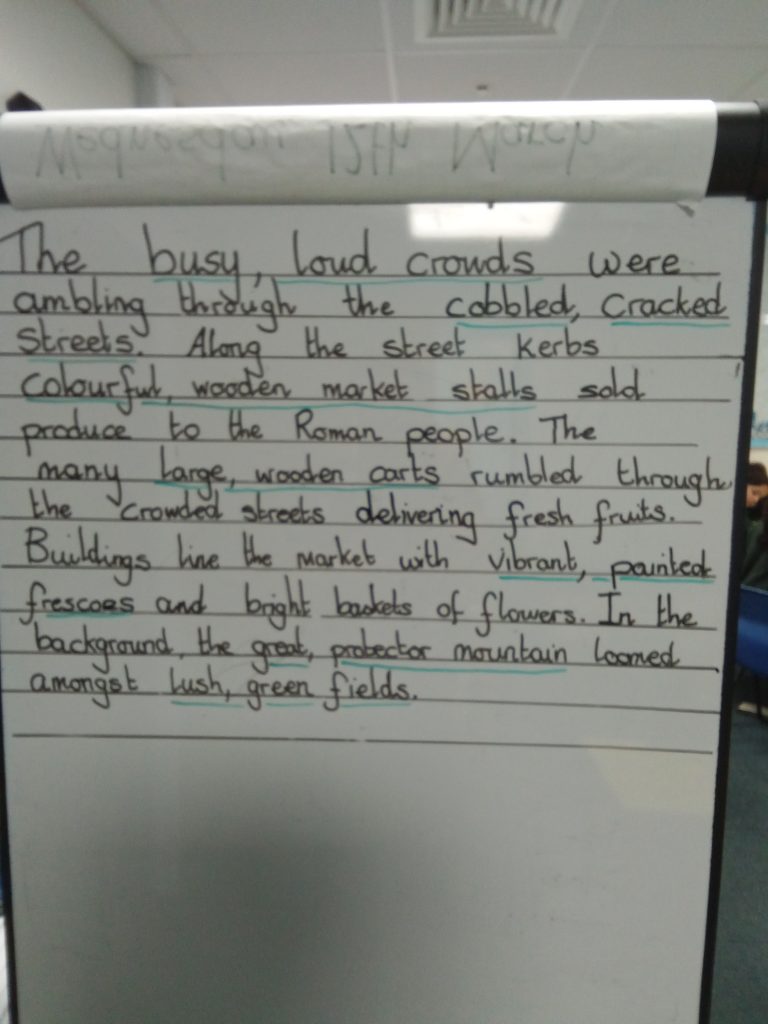 Wednesday 12th March
The busy, loud crowds were
ambling through the cobbled, cracked
streets. Along the street kerbs
colourful, wooden market stalls sold
produce to the Roman people. The
many large, wooden carts rumbled through
the crowded streets delivering fresh fruits.
Buildings line the market with vibrant, painted
frescoes and bright baskets of flowers. In the
background, the great, protector mountain loomed
amongst lush, green fields.